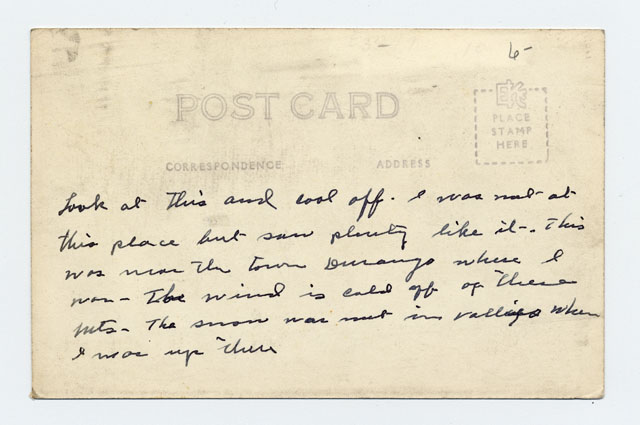 6-
POST CARD
EK
PLACE
STAMP
HERE
CORRESPONDENCE ADDRESS
Look at this and cool off. I was not at
this place but saw plenty like it. This
was near the town Durango where I
was - The wind is cold off of these
mts - The snow was not in valleys when
I was up there